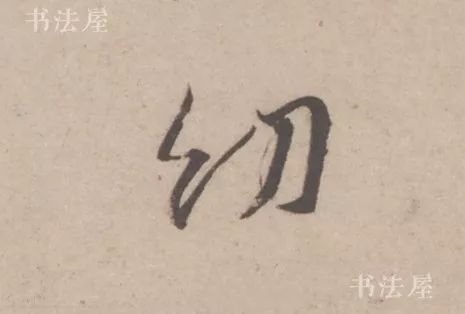 书法屋
幼
书法屋